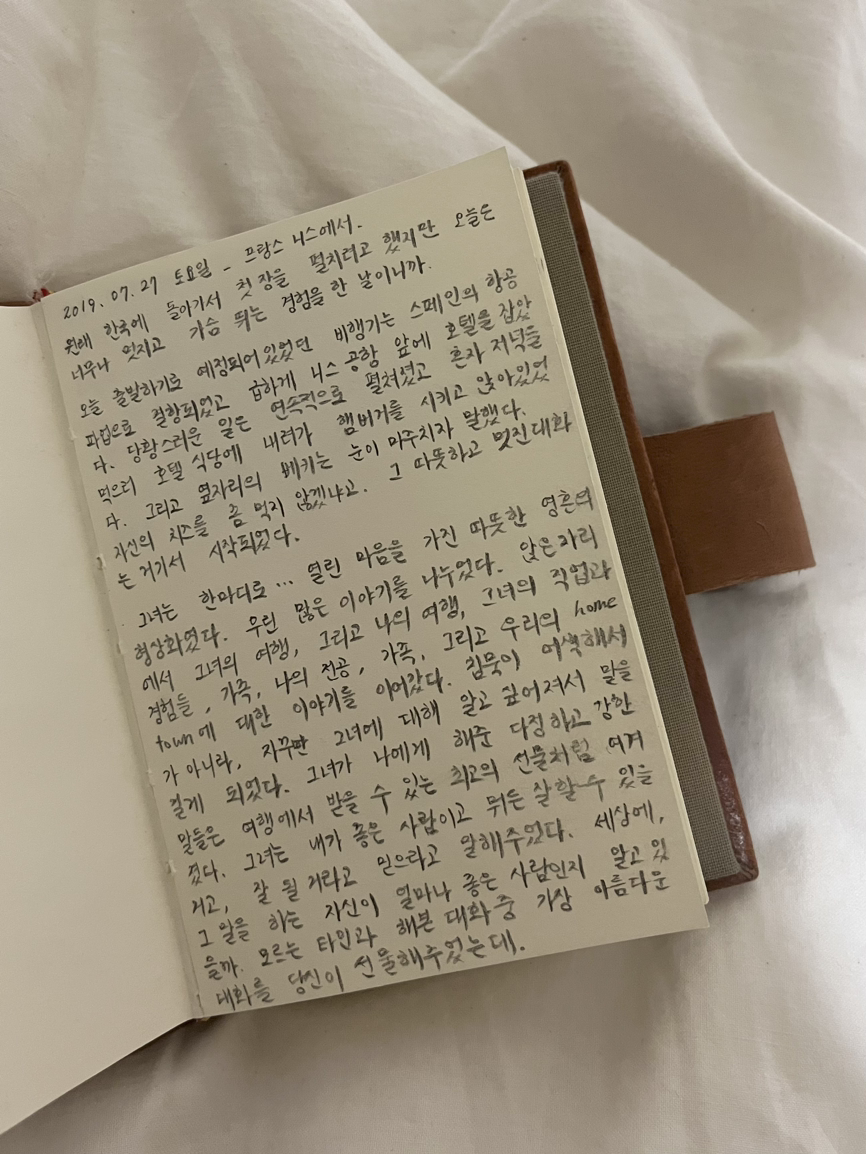 2019. 07. 27 토요일 - 프랑스 니스에서.
원래 한국에 돌아가서 첫 장을 펼치려고 했지만 오늘은
너무나 멋지고 가슴 뛰는 경험을 한 날이니까.
오늘 출발하기로 예정되어 있었던 비행기는 스페인의 항공
파업으로 결항되었고 급하게 니스 공항 앞에 호텔을 잡았
다. 당황스러운 일은 연속적으로 펼쳐졌고 혼자 저녁을
먹으러 호텔 식당에 내려가 햄버거를 시키고 앉아있었
다. 그리고 옆자리의 베키는 눈이 마주치자 말했다.
자신의 치즈를 좀 먹지 않겠냐고. 그 따뜻하고 멋진 대화
는 거기서 시작되었다.
그녀는 한마디로... 열린 마음을 가진 따뜻한 영혼의
형상화였다. 우린 많은 이야기를 나누었다. 앉은자리
에서 그녀의 여행, 그리고 나의 여행, 그녀의 직업과
경험들, 가족, 나의 전공, 가족, 그리고 우리의 home
town에 대한 이야기를 이어갔다. 침묵이 어색해서
가 아니라, 자꾸만 그녀에 대해 알고 싶어져서 말을
걸게 되었다. 그녀가 나에게 해준 다정하고 강한
말들은 여행에서 받을 수 있는 최고의 선물처럼 여겨
졌다. 그녀는 내가 좋은 사람이고 뭐든 잘할 수 있을
거고, 잘 될 거라고 믿으라고 말해주었다. 세상에,
그 말을 하는 자신이 얼마나 좋은 사람인지 알고 있
을까. 모르는 타인과 해본 대화 중 가장 아름다운
대화를 당신이 선물해주었는데.